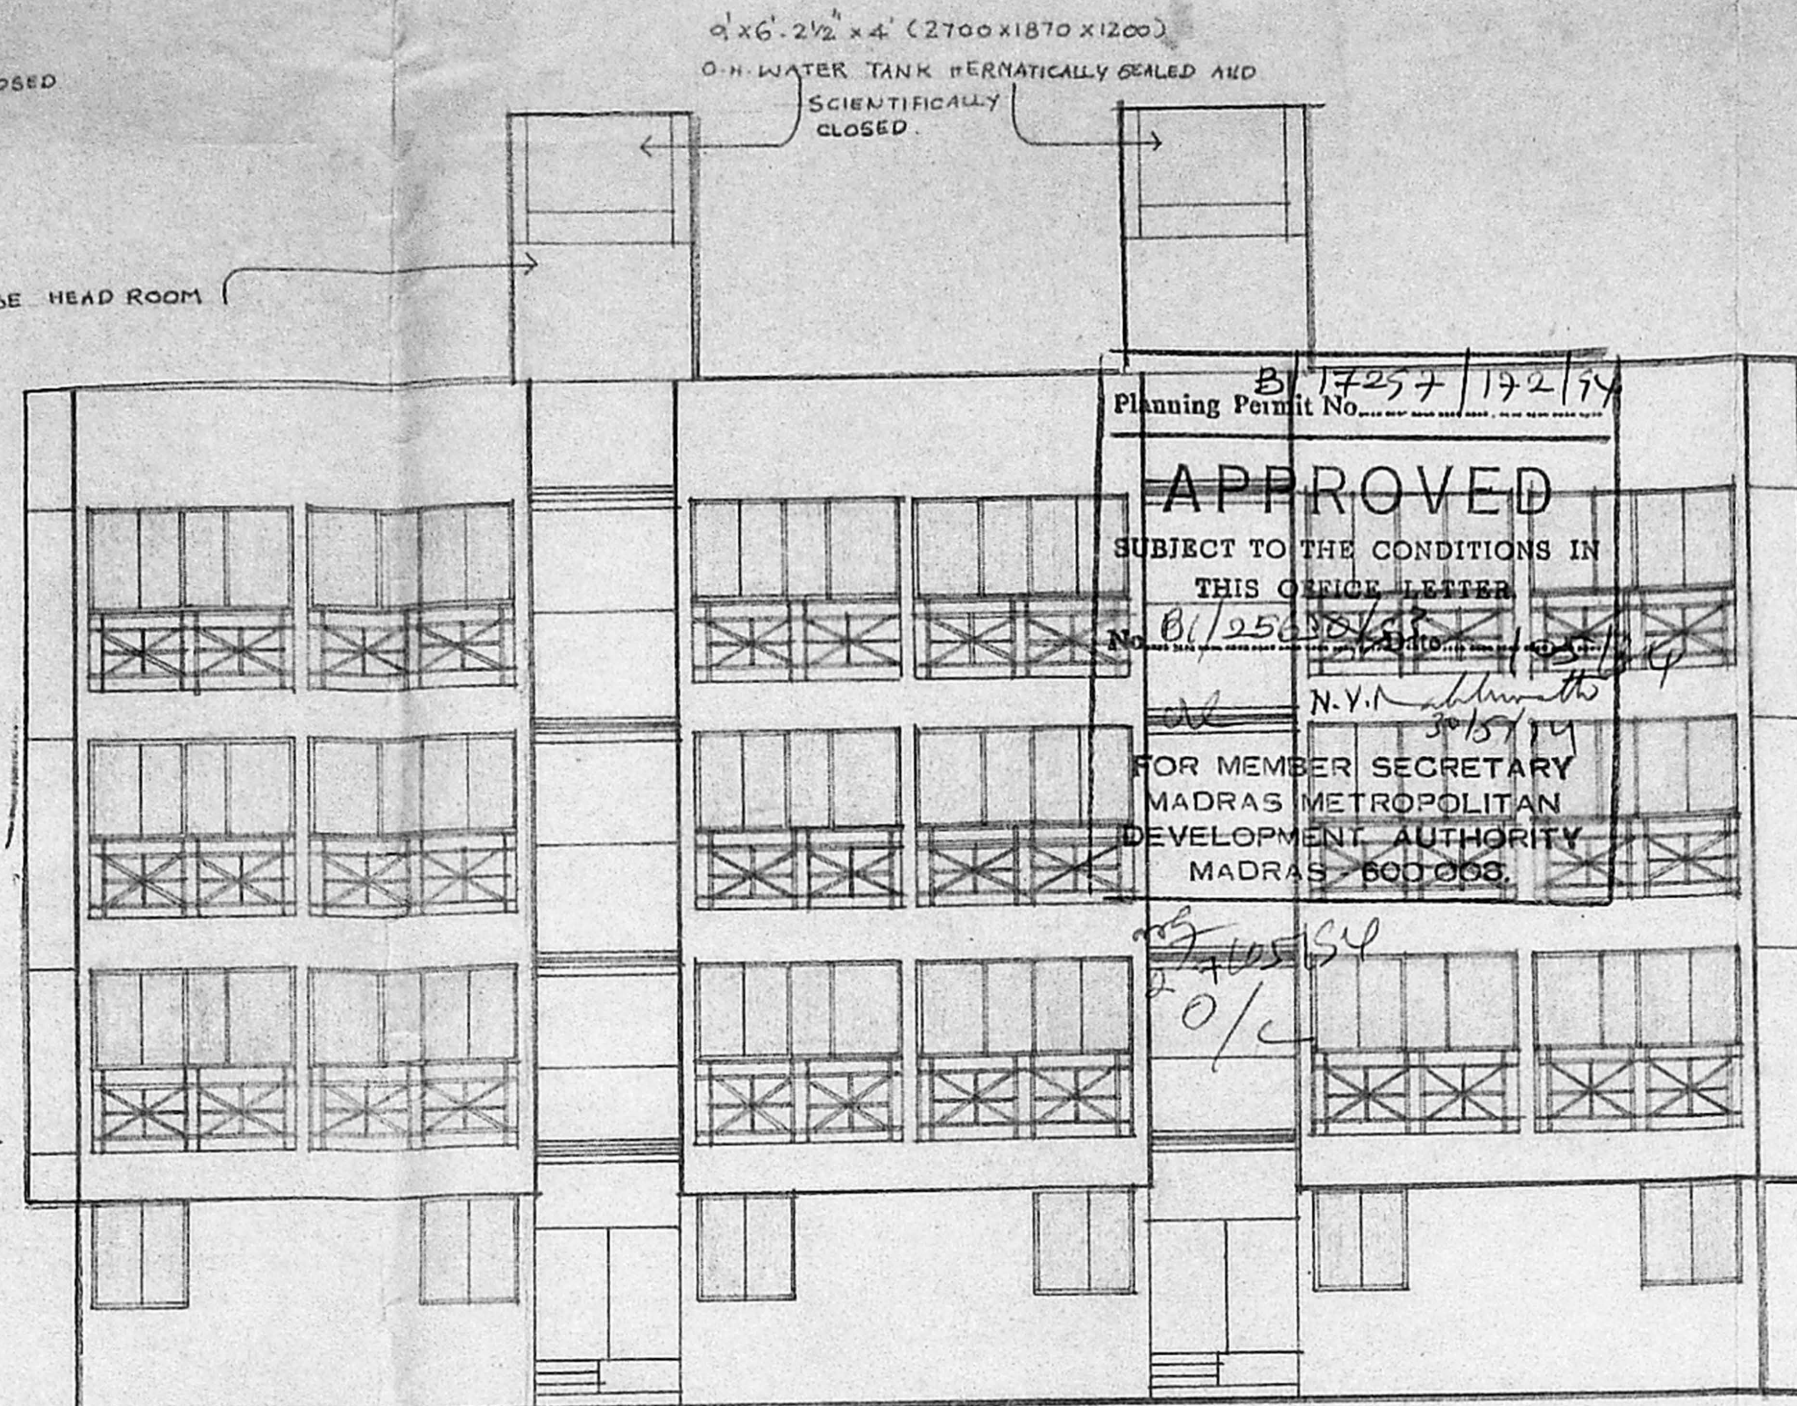 9' x 6'-2½" x 4' (2700 x 1870 x 1200)
O.H. WATER TANK HERMATICALLY SEALED AND
SCIENTIFICALLY
CLOSED.
OSED
SE HEAD ROOM
Planning Permit No. B/17257/172/94
APPROVED
SUBJECT TO THE CONDITIONS IN
THIS OFFICE LETTER
No. Date
N.V.
30/5/94
FOR MEMBER SECRETARY
MADRAS METROPOLITAN
DEVELOPMENT AUTHORITY
MADRAS - 600 008.
O/C